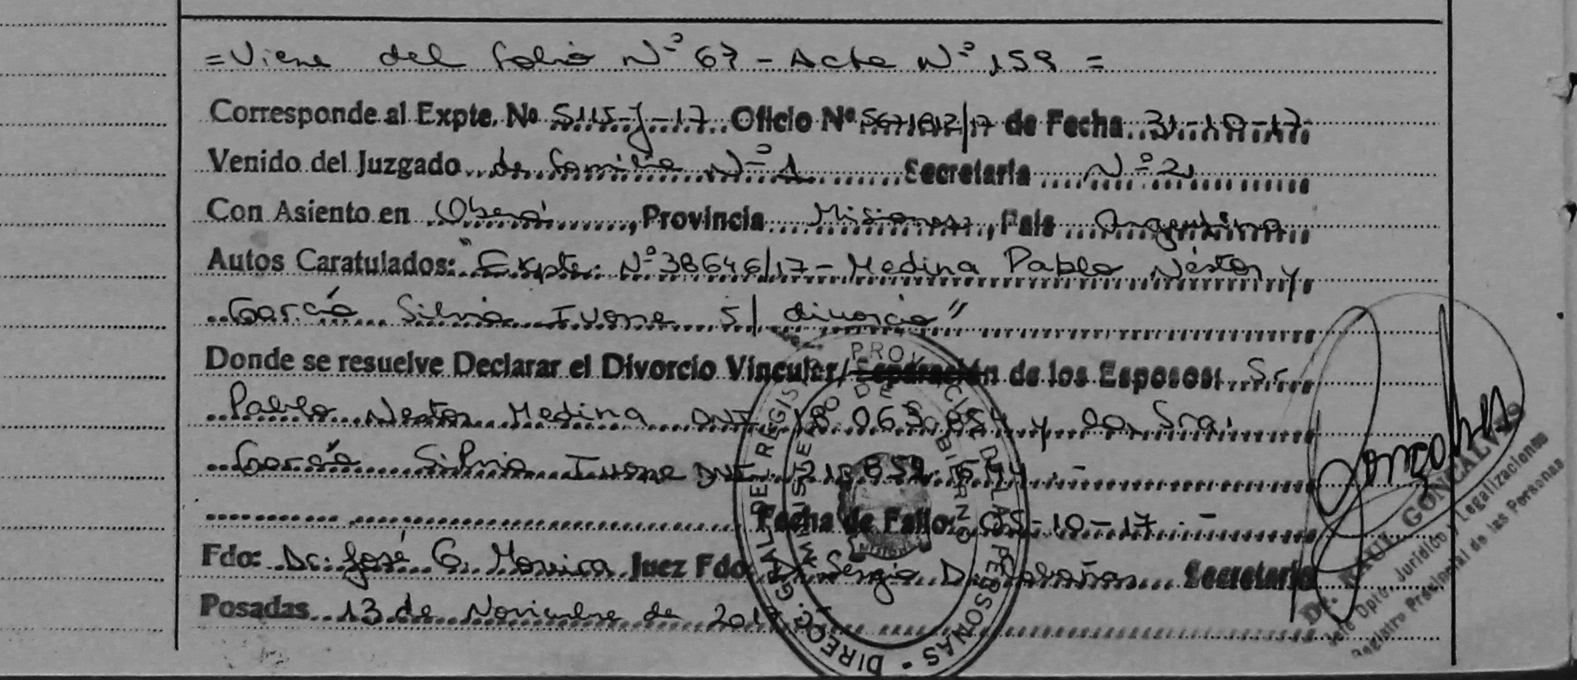 =Viene del folio N° 67 - Acta N° 159 =
Corresponde al Expte. Nº 5115-J-17 Oficio Nº 5671812/17 de Fecha 31-10-17
Venido del Juzgado de familia N° 1 Secretaria N° 2
Con Asiento en Oberá, Provincia Misiones, País Argentina
Autos Caratulados: "Expte. N° 38646/17 - Medina Pablo Néstor y
García Silvia Ivone s/ divorcio"
Donde se resuelve Declarar el Divorcio Vincular/Separación de los Esposos: Sr.
Pablo Nestor Medina DNI 18.063.  y la Sra.
García Silvia Ivone DNI
Fecha de Fallo: 05-10-17.-
Fdo: Dr. José G. Moreira Juez Fdo: Dr Sergio D. Secretario
Posadas 13 de Noviembre de 2017.
DIREC. GRAL. DEL REGISTRO PROVINCIAL DE LAS PERSONAS
MINISTERIO DE GOBIERNO
Dr. RAUL GONCALVES
Jefe Dpto. Jurídico y Legalizaciones
Registro Provincial de las Personas